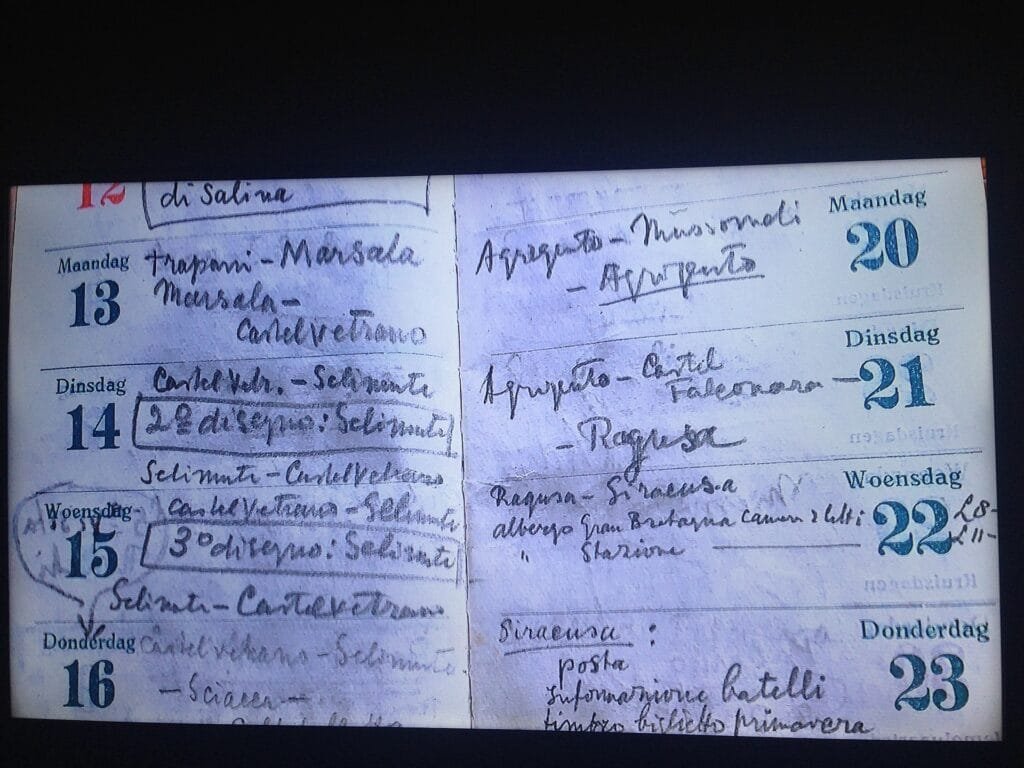 12
di Salina
Maandag
13
Trapani - Marsala
Marsala -
Castelvetrano
Dinsdag
14
Castelvetr. - Selinunte
2º disegno: Selinunte
Selinunte - Castelvetrano
Woensdag
15
Castelvetrano - Selinunte
3º disegno: Selinunte
Selinunte - Castelvetrano
Donderdag
16
Castelvetrano - Selinunte
- Sciacca -
Maandag
20
Agrigento - Mussomeli
- Agrigento
Dinsdag
21
Agrigento - Castel
Falconara -
- Ragusa
Woensdag
22
Ragusa - Siracusa
albergo Gran Bretagna camera 2 letti £8-
" Stazione £11-
Donderdag
23
Siracusa :
posta
informazione batelli
timbro biglietto primavera